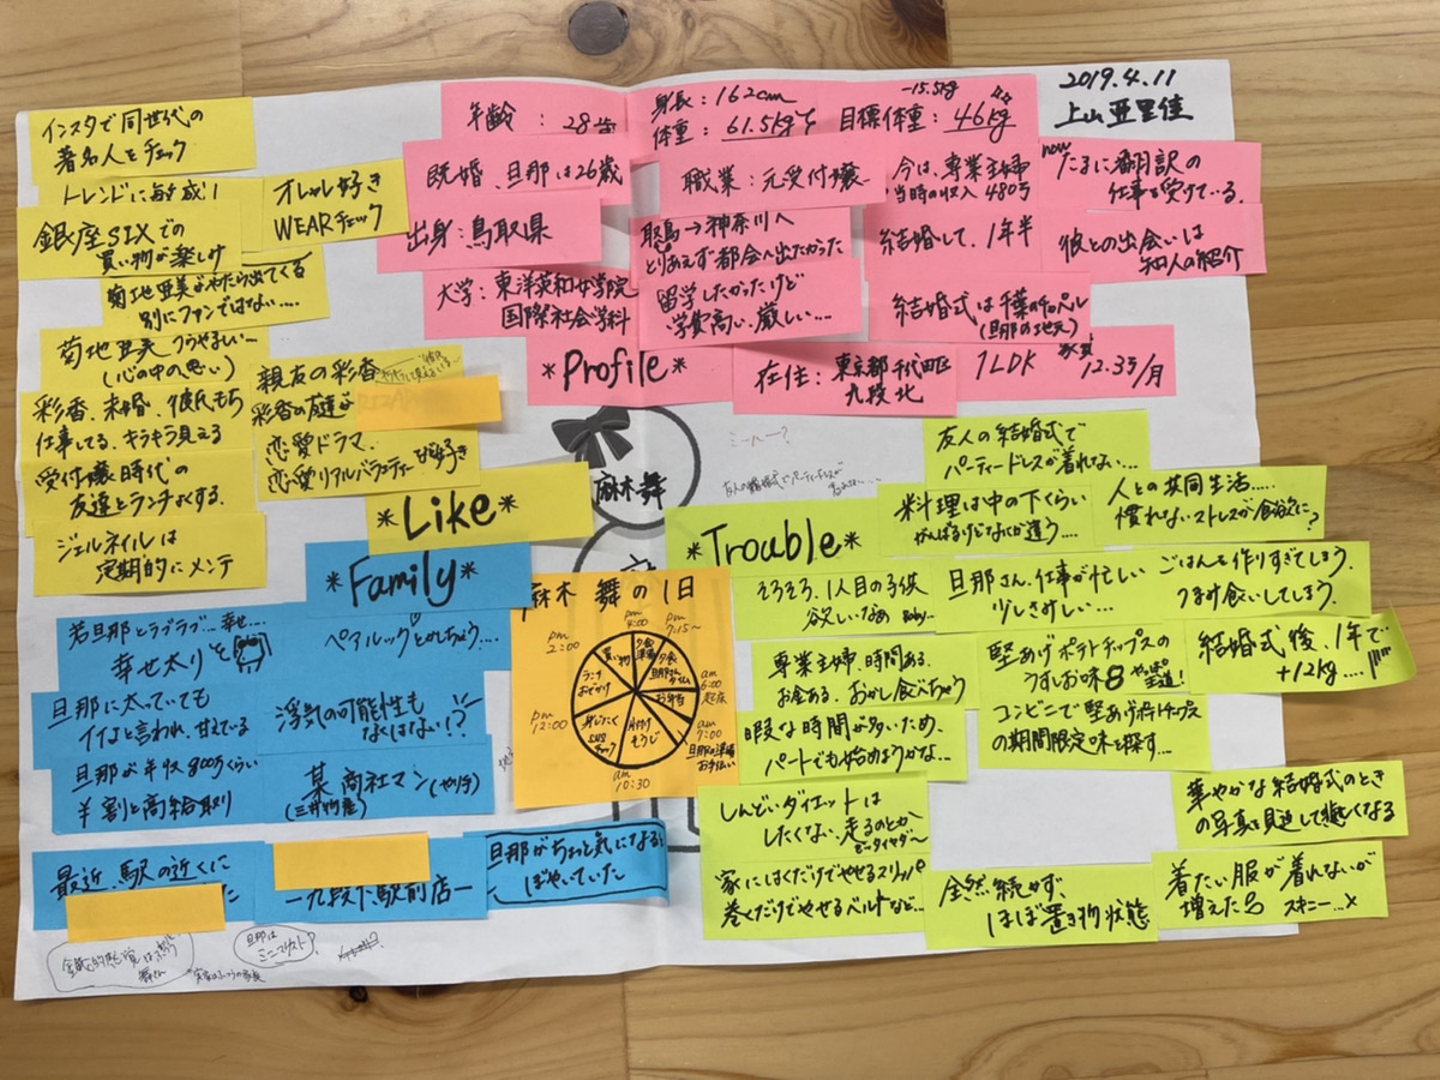 2019.4.11
上山亜里佳
年齢 : 28歳
身長 : 162cm
体重 : 61.5kg
-15.5kg
目標体重 : 46kg
既婚、旦那は26歳
職業 : 元受付嬢
今は、専業主婦
当時の収入 480万
now
たまに翻訳の
仕事を受けている。
出身 : 鳥取県
鳥取→神奈川へ
とりあえず都会へ出たかった
結婚して、1年半
彼との出会いは
知人の紹介
大学 : 東洋英和女学院
国際社会学科
留学したかったけど
学費高い、厳しい....
結婚式は千葉のチャペル
(旦那の地元)
*Profile*
在住 : 東京都千代田区
九段北
1LDK
家賃
12.3万/月
インスタで同世代の
著名人をチェック
トレンドに敏感!
オシャレ好き
WEARチェック
銀座SIXでの
買い物が楽しみ
菊地亜美がやたら出てくる
別にファンではない....
菊地亜美 うらやましい...
(心の中の思い)
親友の彩香
彩香の友達が
彩香、未婚、彼氏もち
仕事してる、キラキラ見える
恋愛ドラマ、
恋愛リアルバラエティーが好き
受付嬢時代の
友達とランチよくする。
ジェルネイルは
定期的にメンテ
*Like*
麻木舞
ミーハー?
*Family*
若旦那とラブラブ...幸せ....
幸せ太り
ペアルックとかしちゃう....
旦那に太っていても
イイよと言われ、甘えている
浮気の可能性も
なくはない!?
旦那が年収800万くらい
¥割と高給取り
某商社マン(やり手)
(三井物産)
最近、駅の近くに
ー九段下駅前店ー
旦那がちょっと気になると
ぼやいていた
旦那は
ミニマリスト?
麻木 舞の1日
pm
2:00
pm
4:00
pm
7:15〜
am
6:00
起床
am
7:00
旦那の準備
お手伝い
am
10:30
pm
12:00
買い物
夕食
準備
夕食
旦那さん
タイム
お弁当
片付け
そうじ
身じたく
SNS
チェック
ランチ
おでかけ
*Trouble*
友人の結婚式で
パーティードレスが着れない...
料理は中の下くらい
がんばるけどなんか違う....
人との共同生活.....
慣れないストレスが食欲に?
そろそろ、1人目の子供
欲しいなぁ
旦那さん、仕事が忙しい
少しさみしい...
ごはんを作りすぎてしまう、
つまみ食いしてしまう。
専業主婦、時間ある、
お金ある、おかし食べちゃう
堅あげポテトチップスの
うすしお味 8 やっぱ
王道!
結婚式後、1年で
+12kg....!
暇な時間が多いため、
パートでも始めようかな...
コンビニで堅あげポテトチップス
の期間限定味を探す...
しんどいダイエットは
したくない、走るのとか
華やかな結婚式のとき
の写真を見返して悲しくなる
家にはくだけでやせるスリッパ
巻くだけでやせるベルトなど...
全然続かず、
ほぼ置き物状態
着たい服が着れないが
増えた スキニー...×